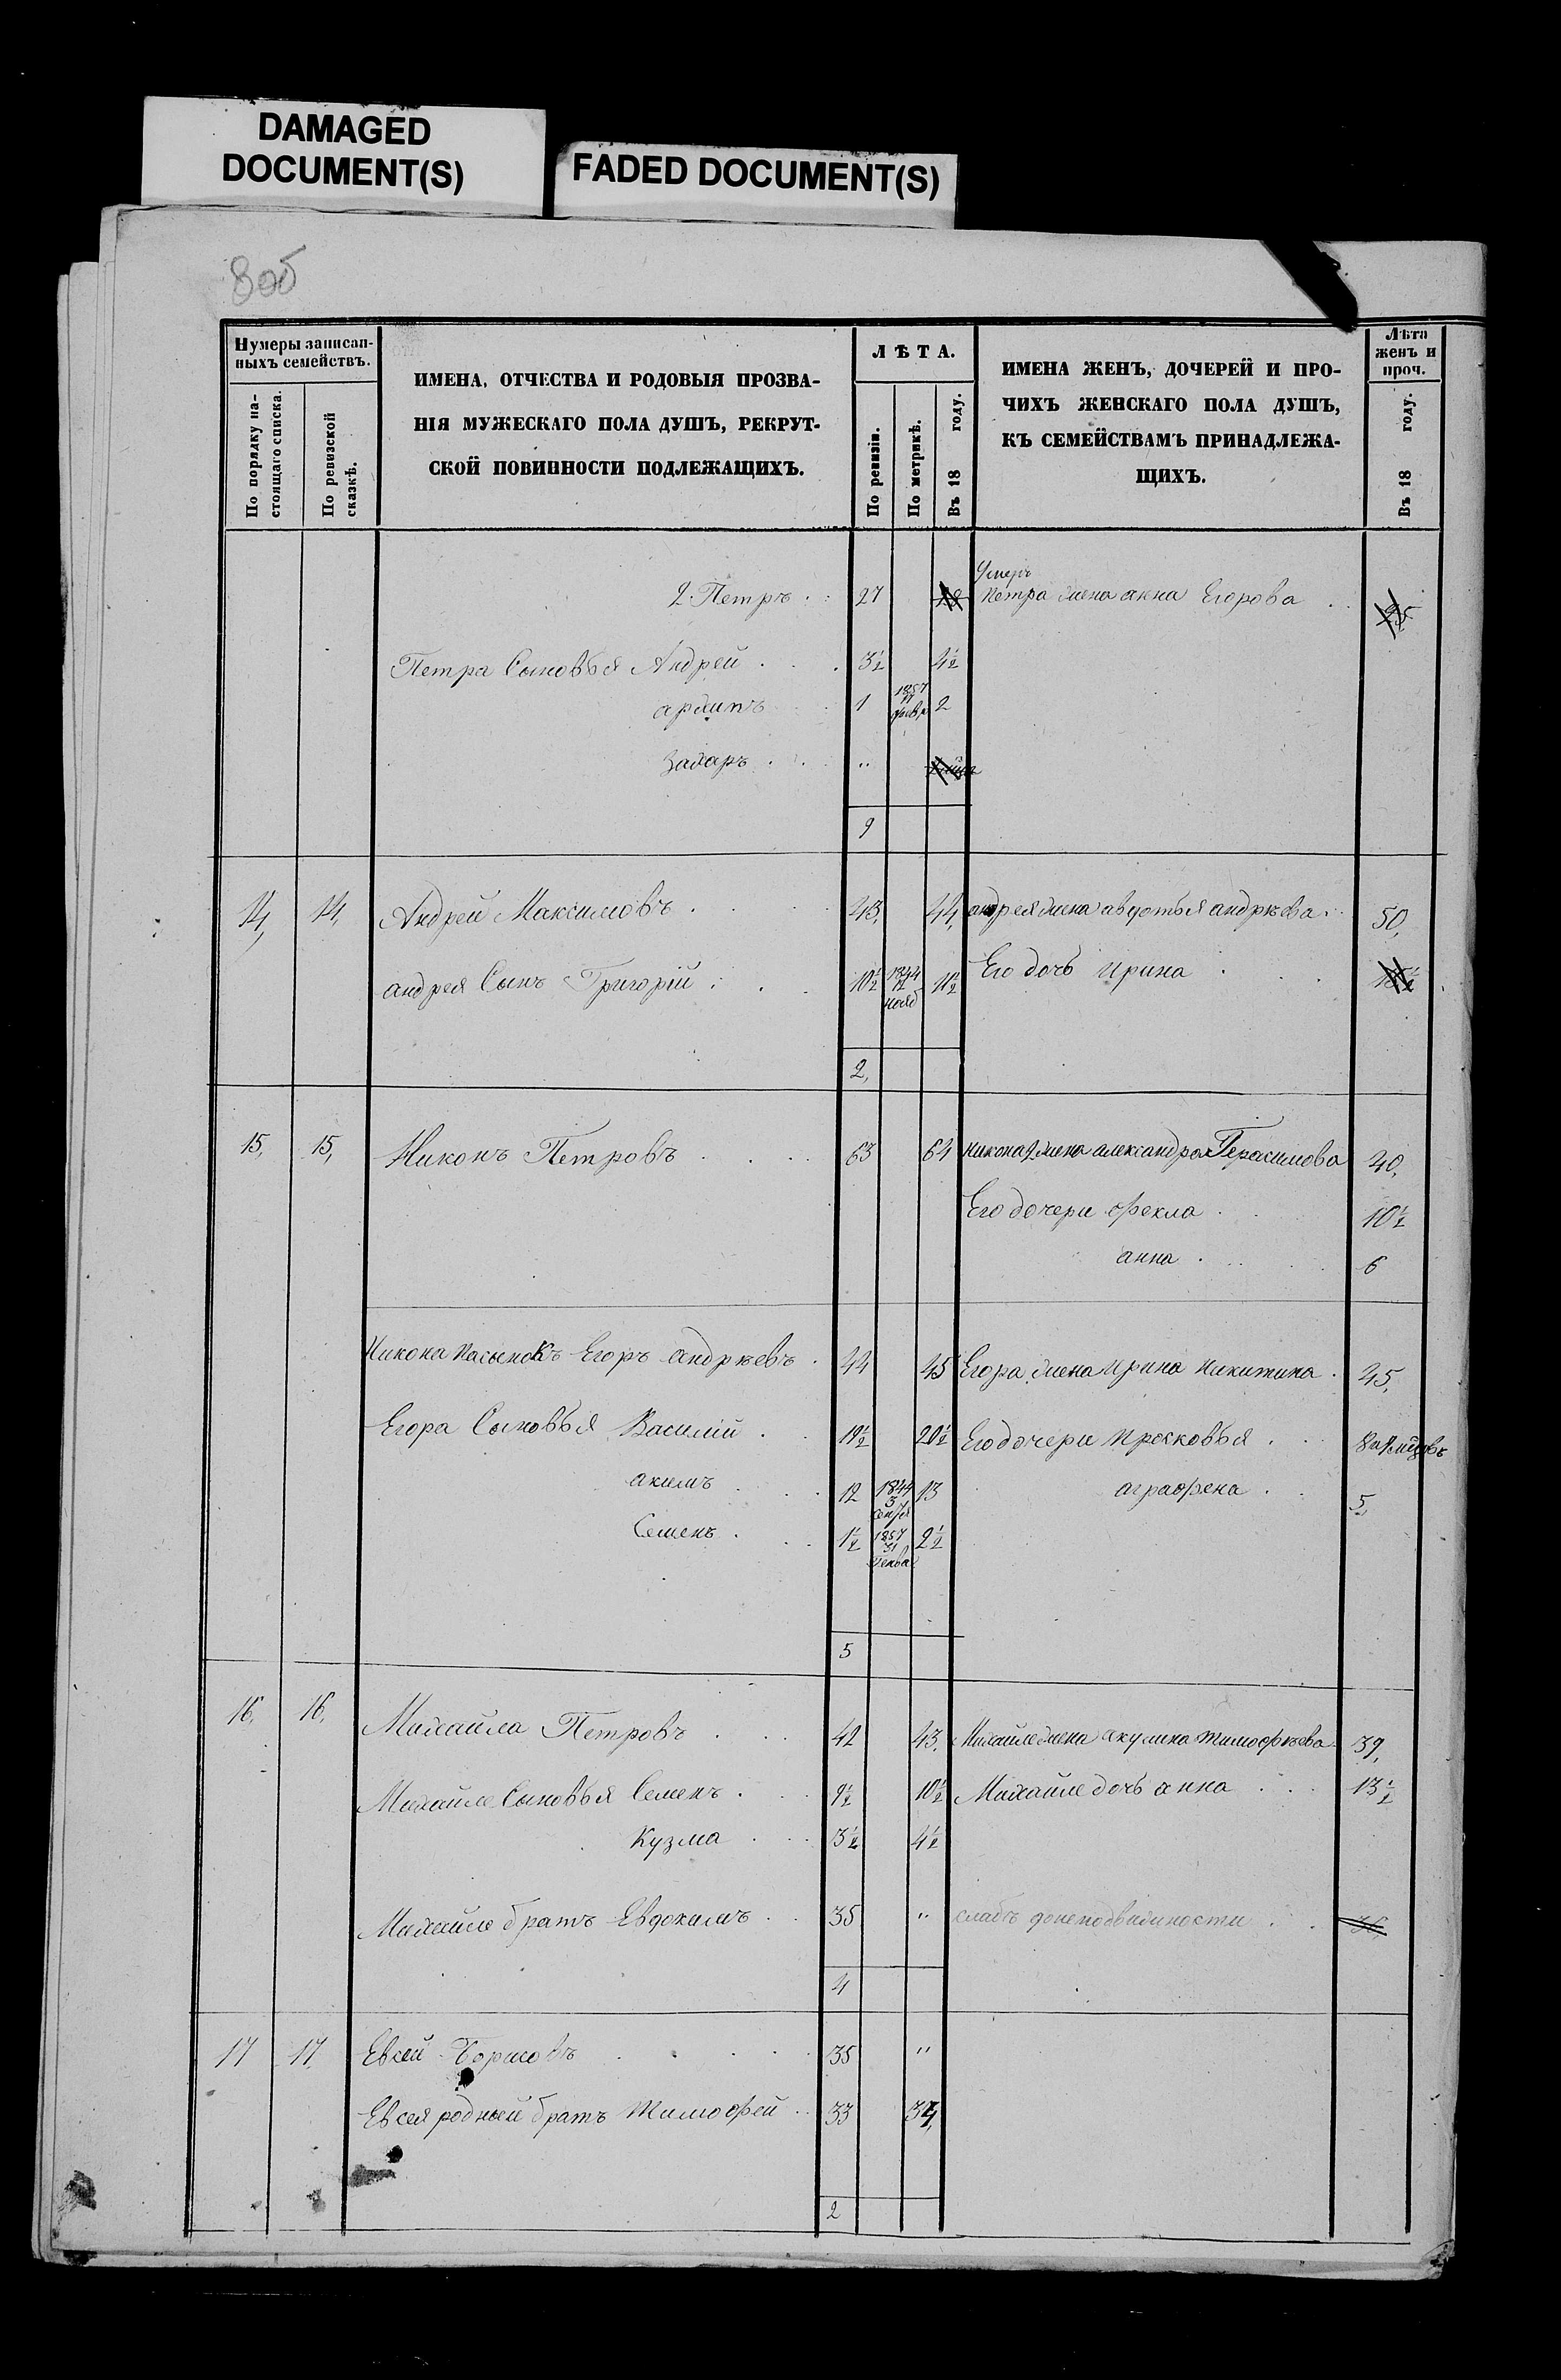 DAMAGED
DOCUMENT(S)
FADED DOCUMENT(S)
Нумеры записан-
ныхъ семействъ.
По порядку на-
стоящаго списка.
По ревизской
сказкѣ.
ИМЕНА, ОТЧЕСТВА И РОДОВЫЯ ПРОЗВА-
НІЯ МУЖЕСКАГО ПОЛА ДУШЪ, РЕКРУТ-
СКОЙ ПОВИННОСТИ ПОДЛЕЖАЩИХЪ.
ЛѢТА.
По ревизіи.
По метрикѣ.
Въ 18 году.
ИМЕНА ЖЕНЪ, ДОЧЕРЕЙ И ПРО-
ЧИХЪ ЖЕНСКАГО ПОЛА ДУШЪ,
КЪ СЕМЕЙСТВАМЪ ПРИНАДЛЕЖА-
ЩИХЪ.
Лѣта
женъ и
проч.
Въ 18 году.
Умеръ
2 Петръ 27 28 Петра жена анна Егорова 25
Петра Сыновья Андрей 3½ 4½
архипъ 1 1857 17 2
Захаръ "
9
14, 14, Андрей Максимовъ 43, 44, андрея жена авдотья андрѣева 50,
андрея Сынъ Григорій 10½ 1844 12 нояб 11½ Его дочь Ирина
2,
15, 15, Никонъ Петровъ 63 64 никона 2 жена александра Герасимова 40,
Его дочери Фекла 10½
анна 6
Никона пасынокъ Егоръ андрѣевъ 44 45 Егора жена Ирина Никитина 45,
Егора Сыновья Василій 19½ 20½ Его дочери Прасковья
акимъ 12 1844 3 сентя 13 аграфена 5
Семенъ 1½ 1857 31 генва 2½
5
16, 16, Михайла Петровъ 42 43, Михайле жена акулина тимофѣева 39,
Михайле Сыновья Семенъ 9½ 10½ Михайле дочь анна 13½
Кузма 3½ 4½
Михайле братъ Евдокимъ 35 " слабъ донеподвижности 36,
4
17 17 Евсей Борисовъ 35 "
Евсея родный братъ Тимофей 33 34,
2